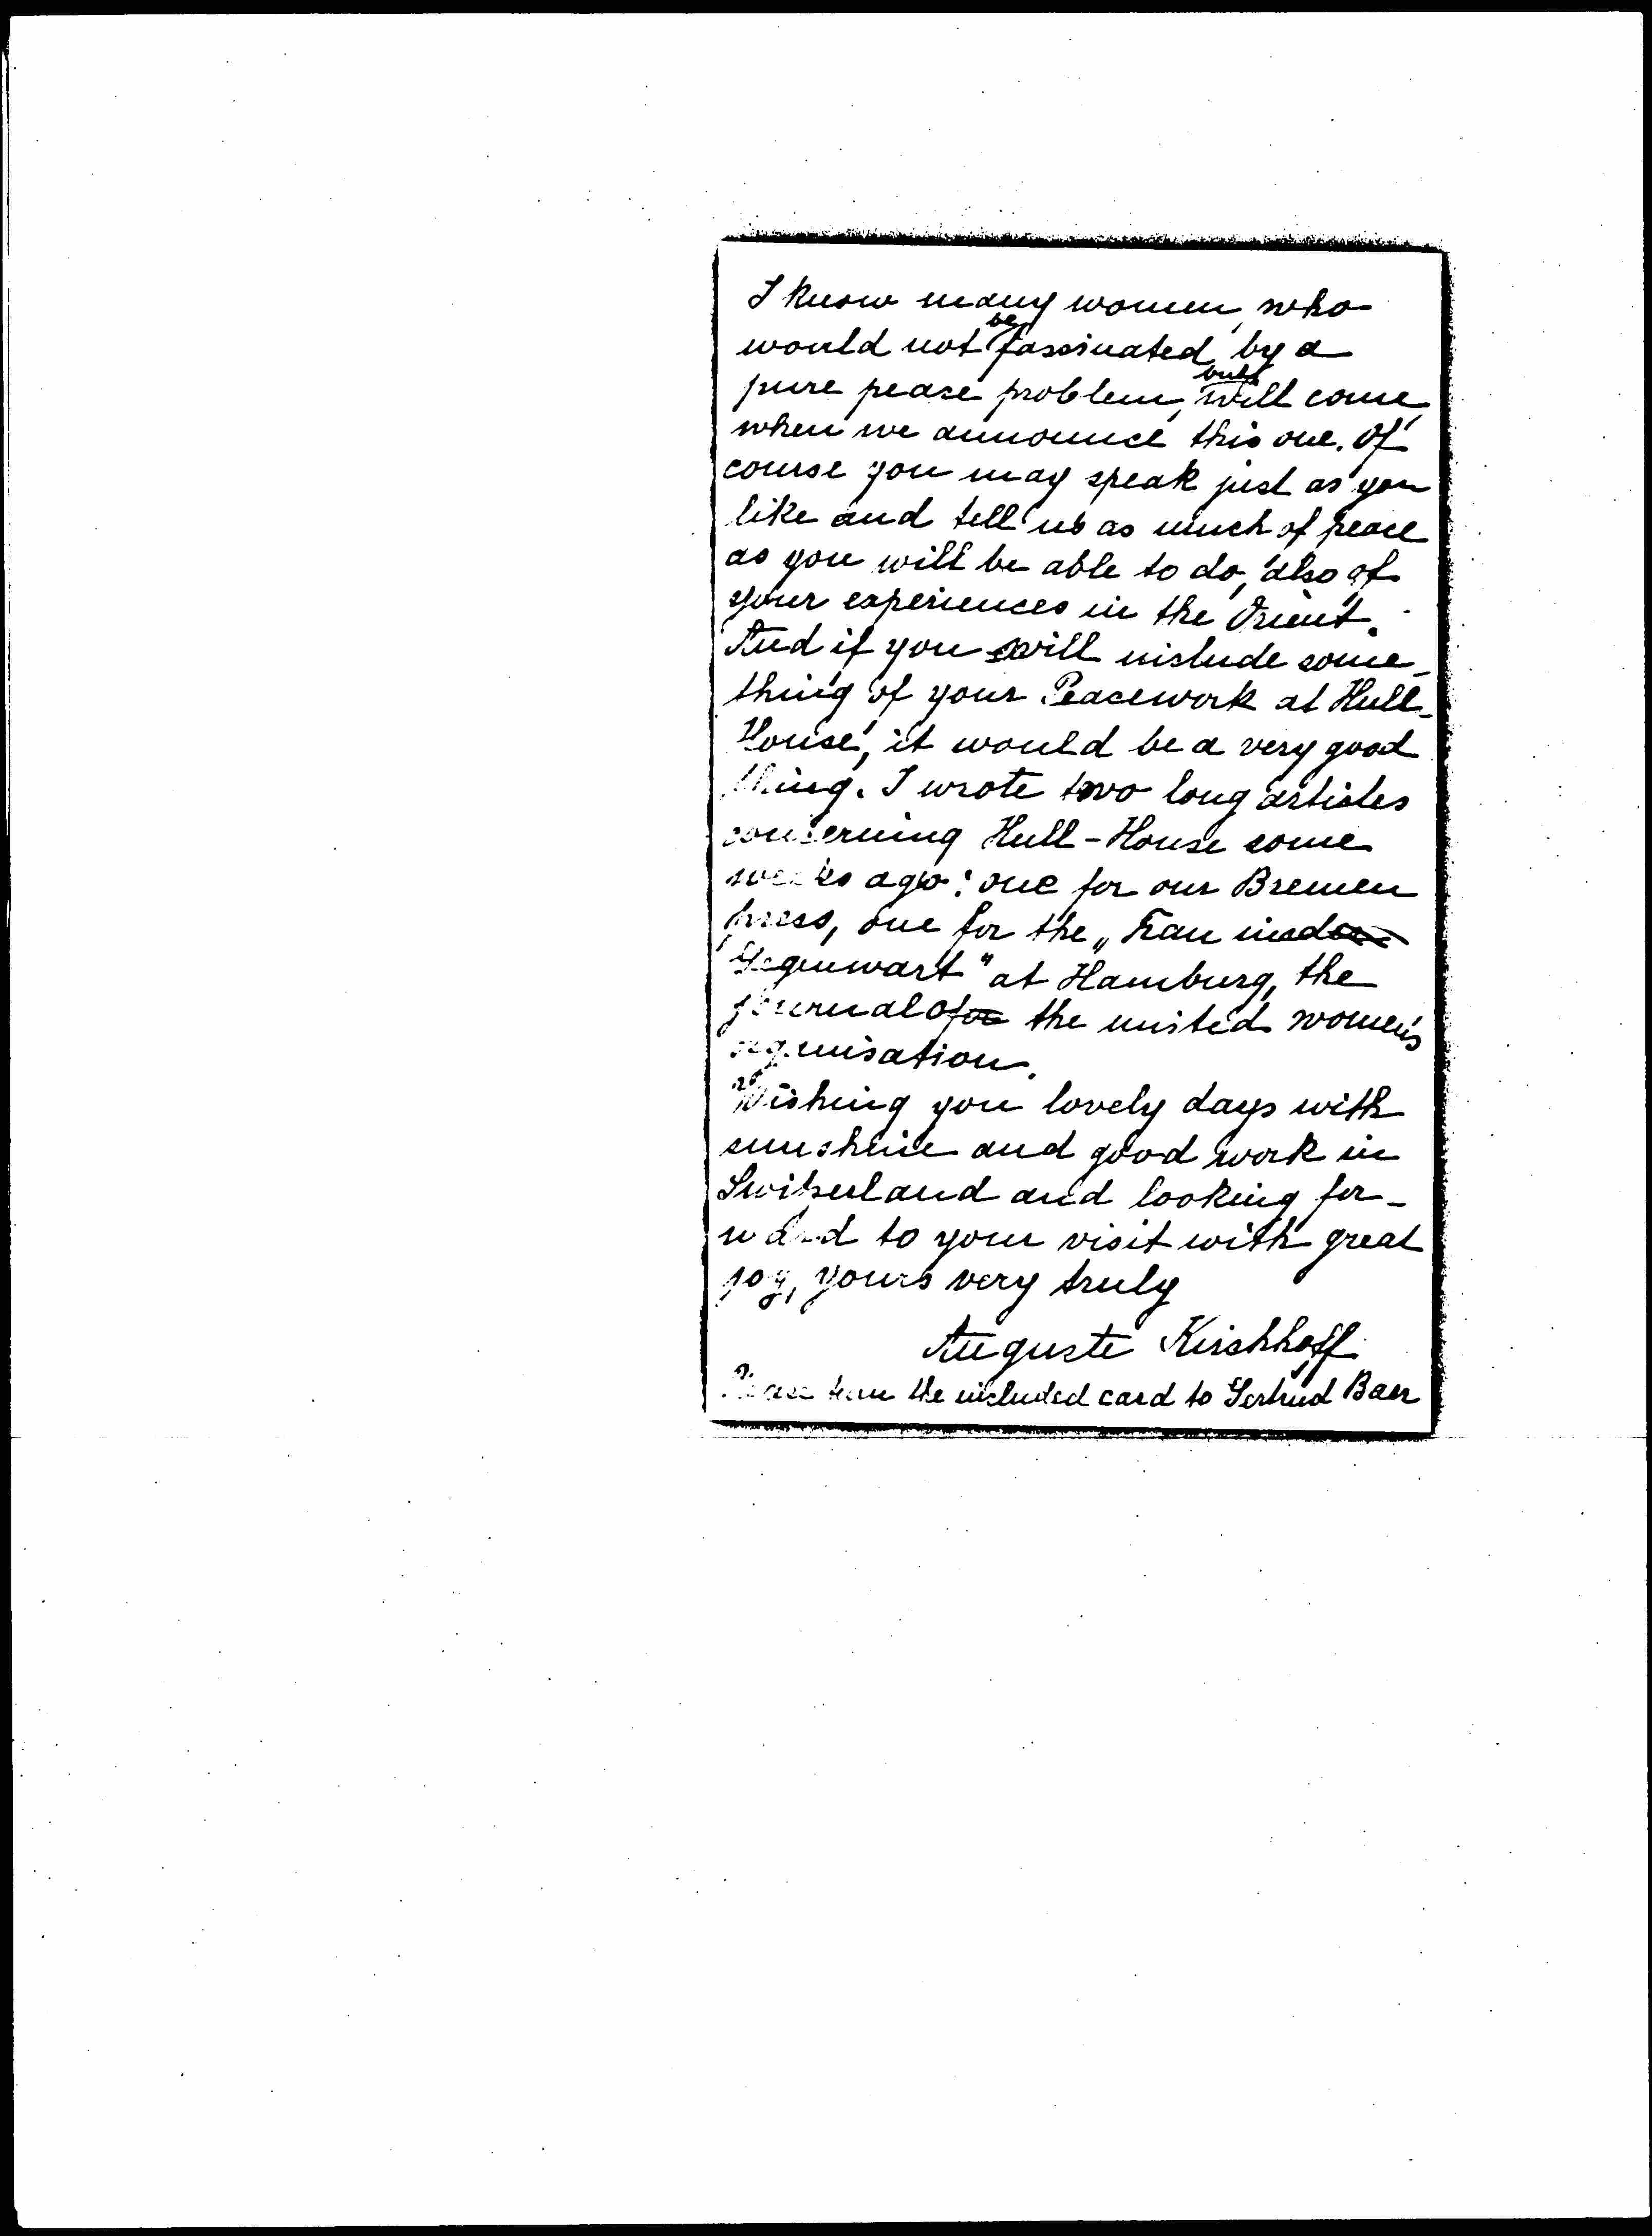 I know many women, who
would not be fascinated by a
pure pease problem, but will come,
when we announce this one. Of
course you may speak just as you
like and tell us as much of peace
as you will be able to do, also of
your experiences in the Orient.
And if you will include some-
thing of your Peacework at Hull-
House, it would be a very good
thing. I wrote two long articles
concerning Hull-House some
weeks ago: one for our Bremen
press, one for the „Frau in der
Gegenwart" at Hamburg, the
journal of the united women's
organisation.
Wishing you lovely days with
sunshine and good work in
Switzerland and looking for-
ward to your visit with great
joy, yours very truly
Auguste Kirchhoff
Please the included card to Gertrud Baer